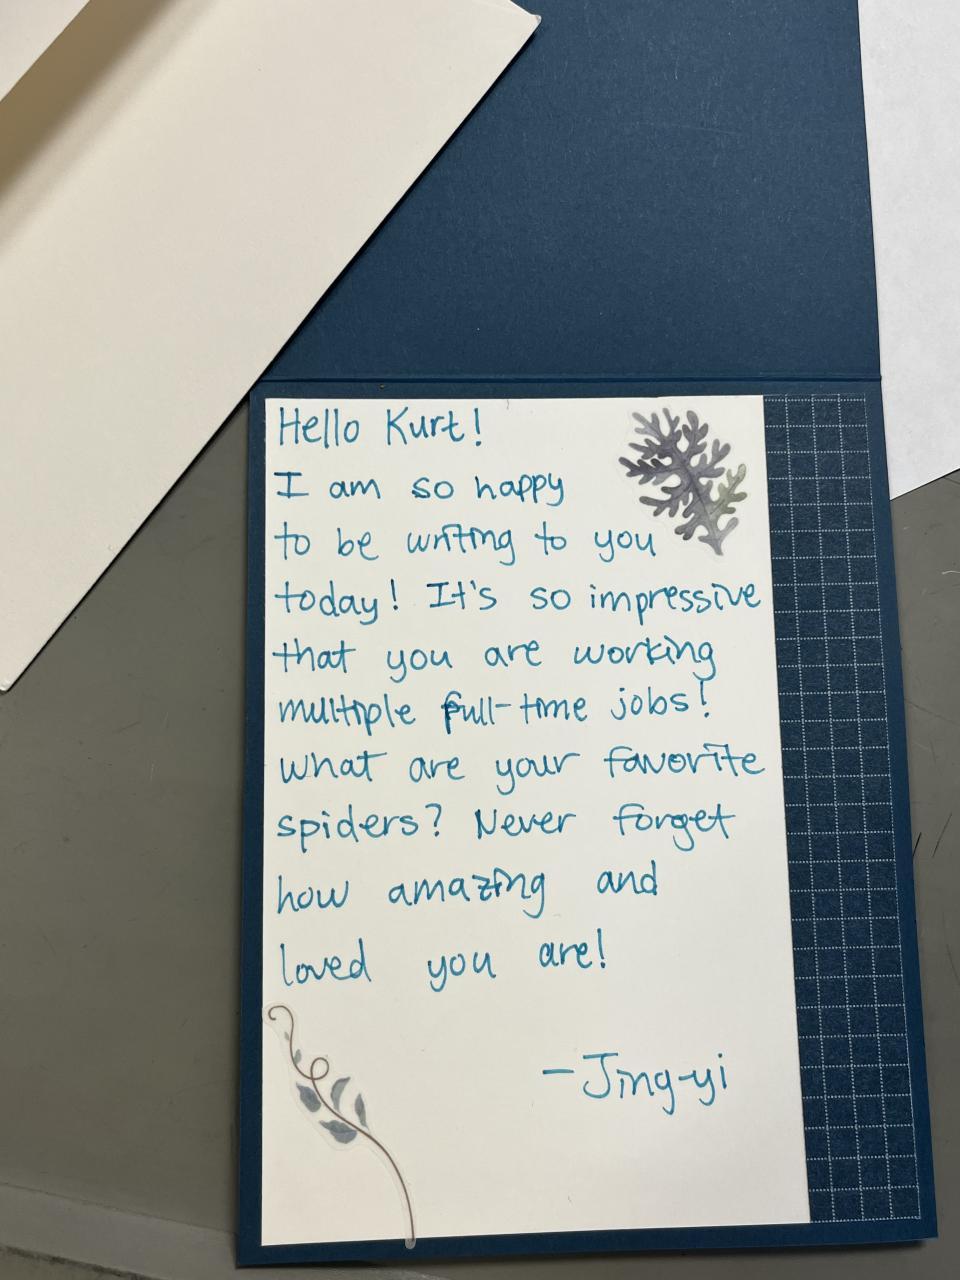 Hello Kurt!
I am so happy
to be writing to you
today! It's so impressive
that you are working
multiple full-time jobs!
What are your favorite
spiders? Never forget
how amazing and
loved you are!
-Jing-yi